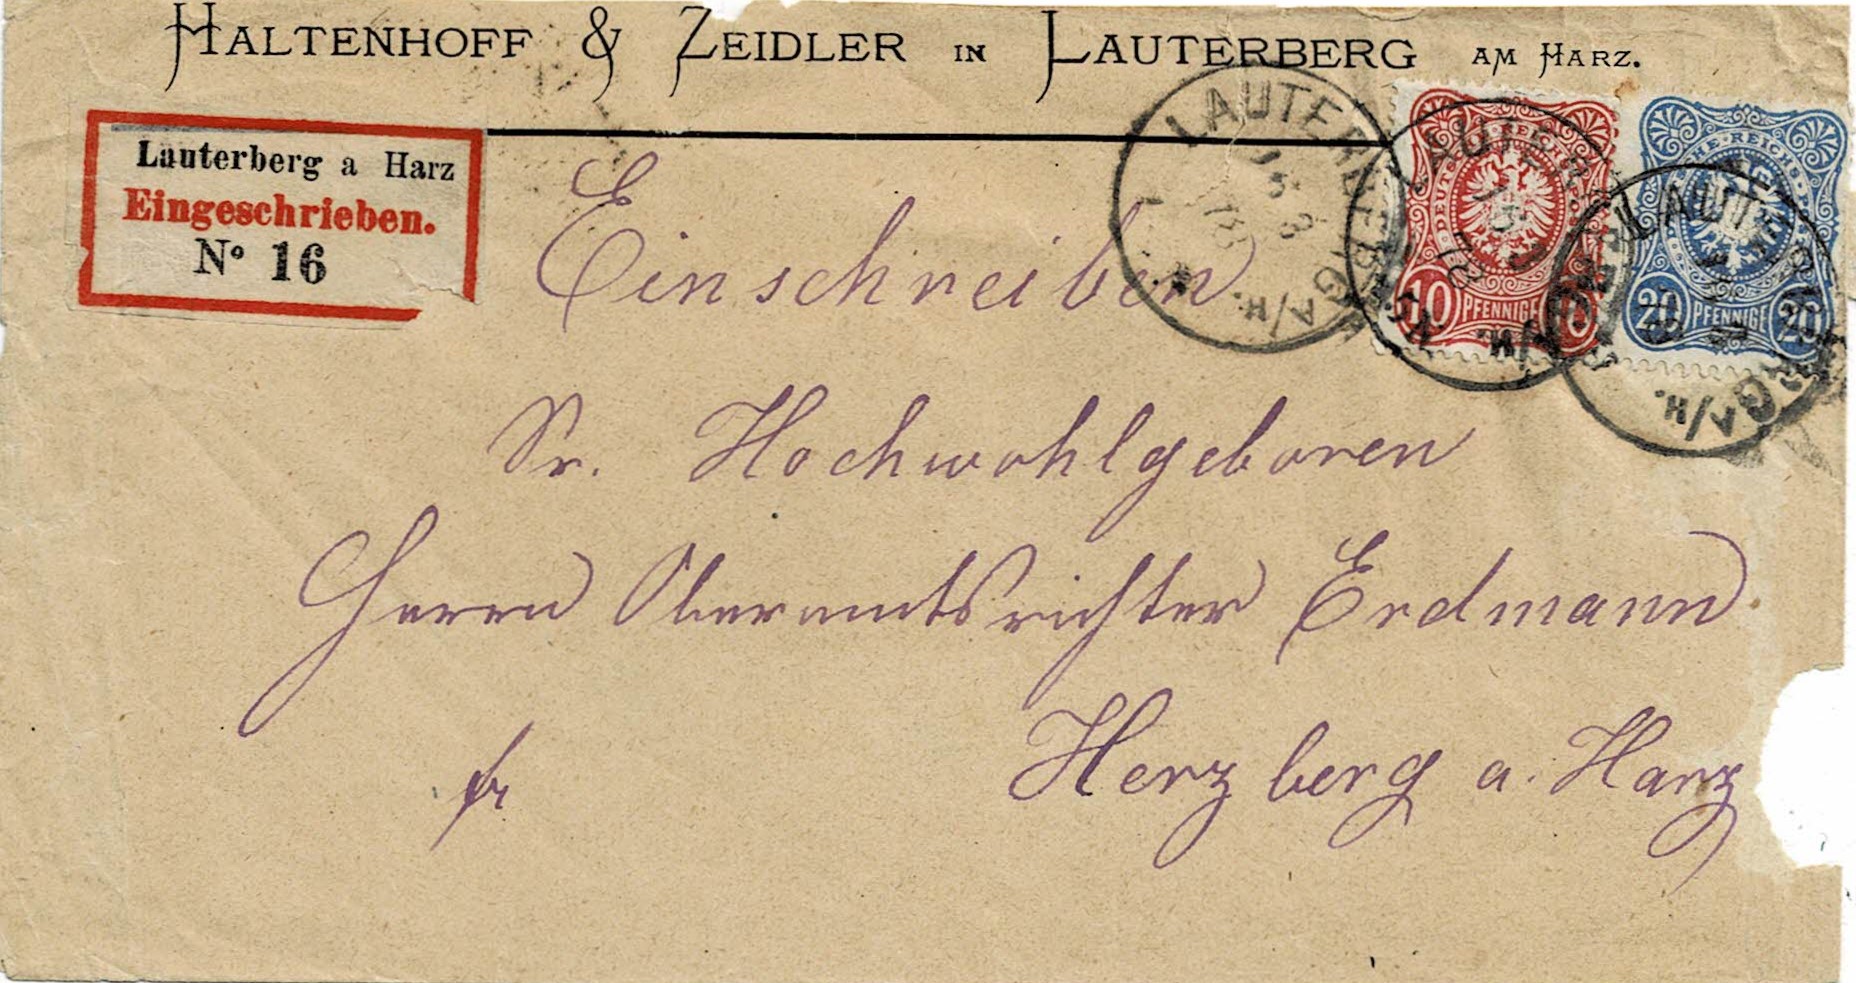 HALTENHOFF & ZEIDLER IN LAUTERBERG AM HARZ.
Lauterberg a Harz
Eingeschrieben.
No 16
LAUTERBERG A/H.
LAUTERBERG A/H.
LAUTERBERG A/H.
10 PFENNIGE 10
20 PFENNIGE 20
Einschreiben
Sr. Hochwohlgeboren
Herrn Oberamtsrichter Erdmann
fr
Herzberg a. Harz